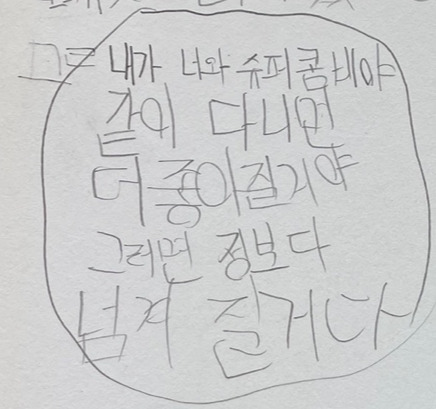 내가 너와 슈퍼콤비야
같이 다니면
더 좋아질거야
그러면 정보다
넘겨 질거다